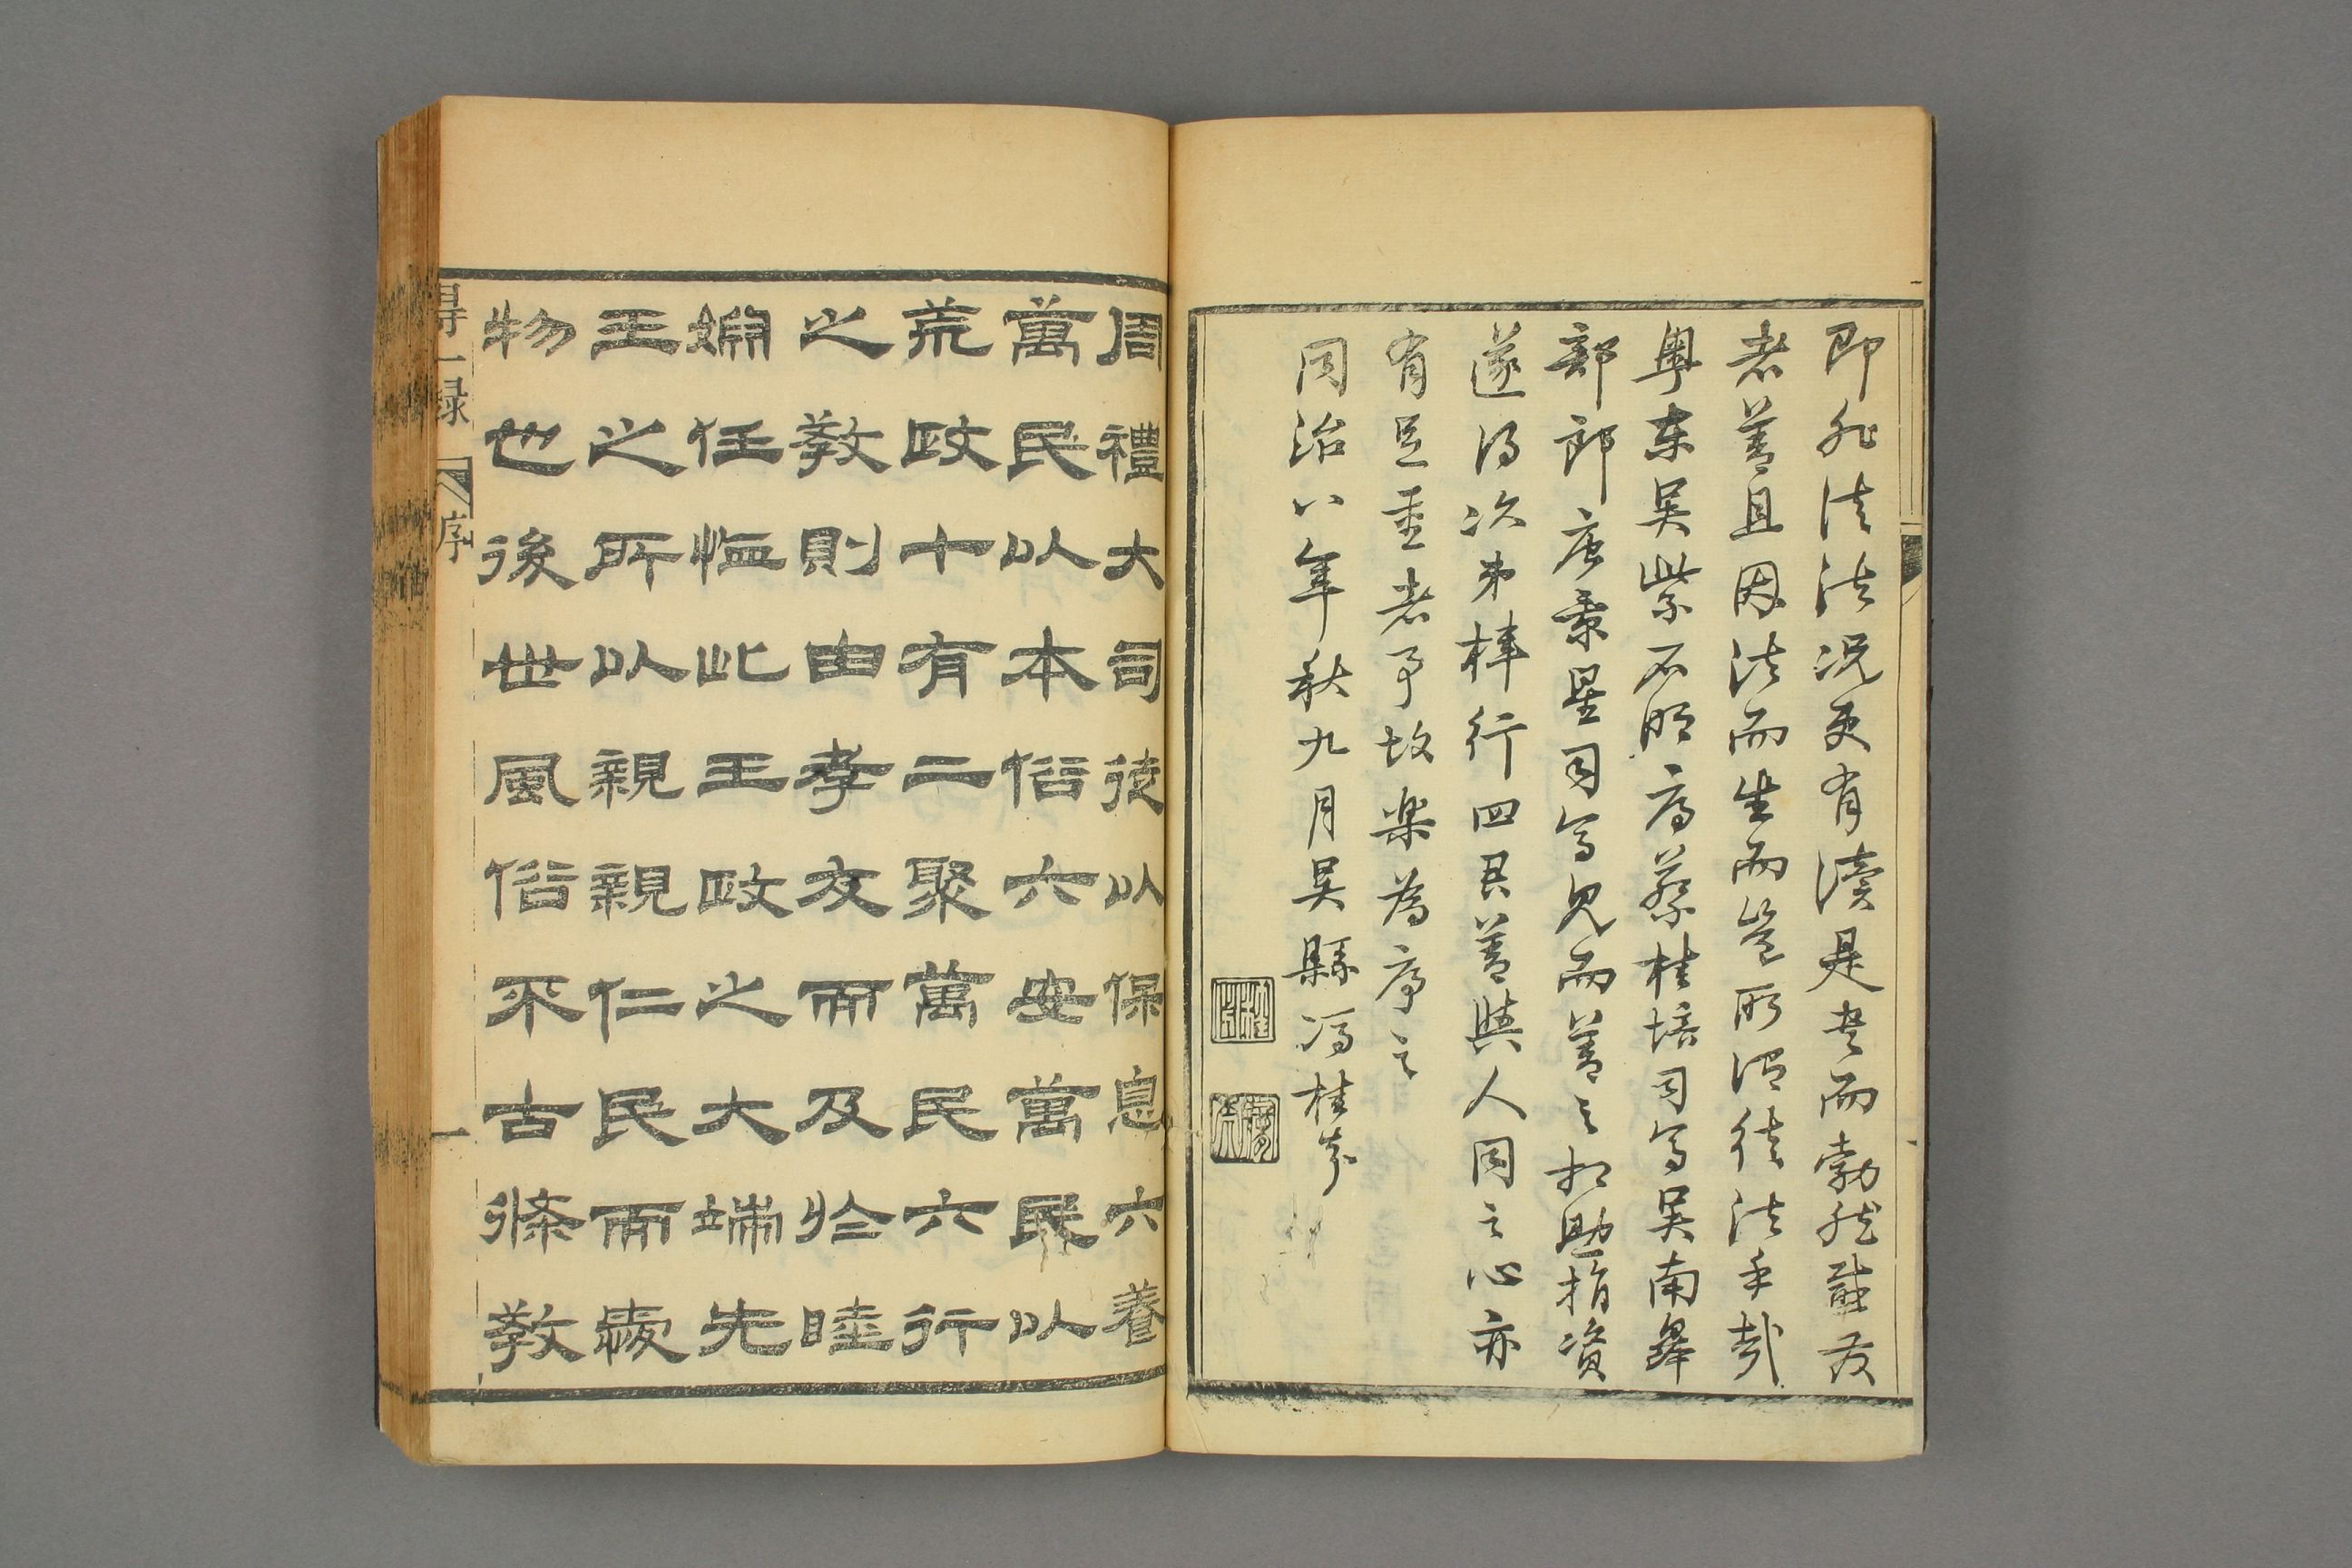 即非法法況更有讀是書而勃然蹵发
者善且因法而生而豈所謂徒法乎哉
粤东吴紫石明府蔡桂培司马吴南皋
部郎唐秉星司马见而善之相助捐资
遂得次第梓行四君善與人同之心亦
有足重者予故樂為序之
同治八年秋九月吴縣馮桂芬
周禮大司徒以保息六養
萬民以本俗六安萬民以
荒政十有二聚萬民六行
之教則由孝友而及於睦
婣任恤此王政之大端先
王之所以親親仁民而愛
物也後世風俗不古條教
得一錄
序
一